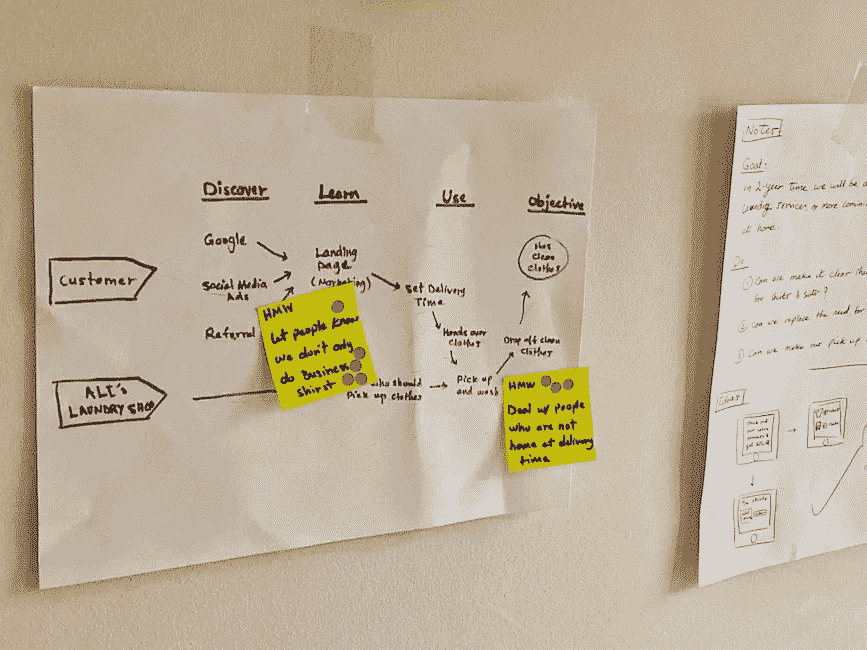 Discover
Learn
Use
Objective
Customer
Google
Social Media
Ads
Referral
Landing
page
(Marketing)
Set Delivery
Time
Hands over
clothes
Drop off clean
clothes
Has
clean
clothes
ALI's
LAUNDRY SHOP
who should
Pick up clothes
Pick up
and wash
HMW
Let people know
we don't only
do Business
shirst
HMW
Deal w/ people
who are not
home at delivery
time
Notes
Goal:
in 2-year time we will be a
laundry services
at home.
Qs
① Can we make it clear tha
for
② Can we replace the need for
③ Can we make our pick up
Ideas